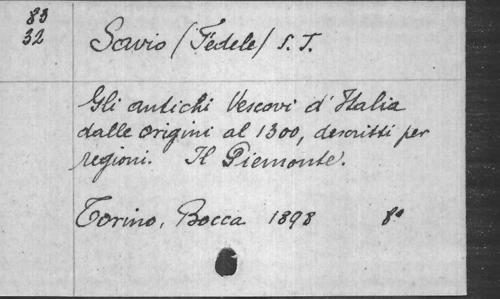 83
32
Savio (Fedele) S. J.
Gli antichi Vescovi d'Italia
dalle origini al 1300, descritti per
regioni. Il Piemonte.
Torino, Bocca 1898 8°